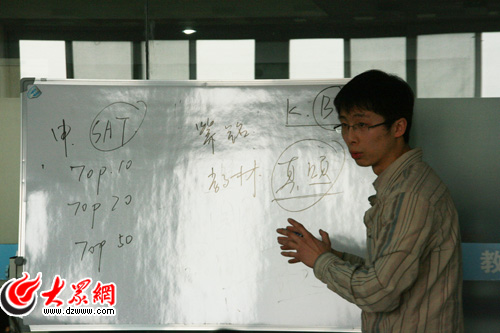 申. SAT
Top 10
Top 20
Top 50
K. B
教材. 真题
教
大眾網
www.dzwww.com